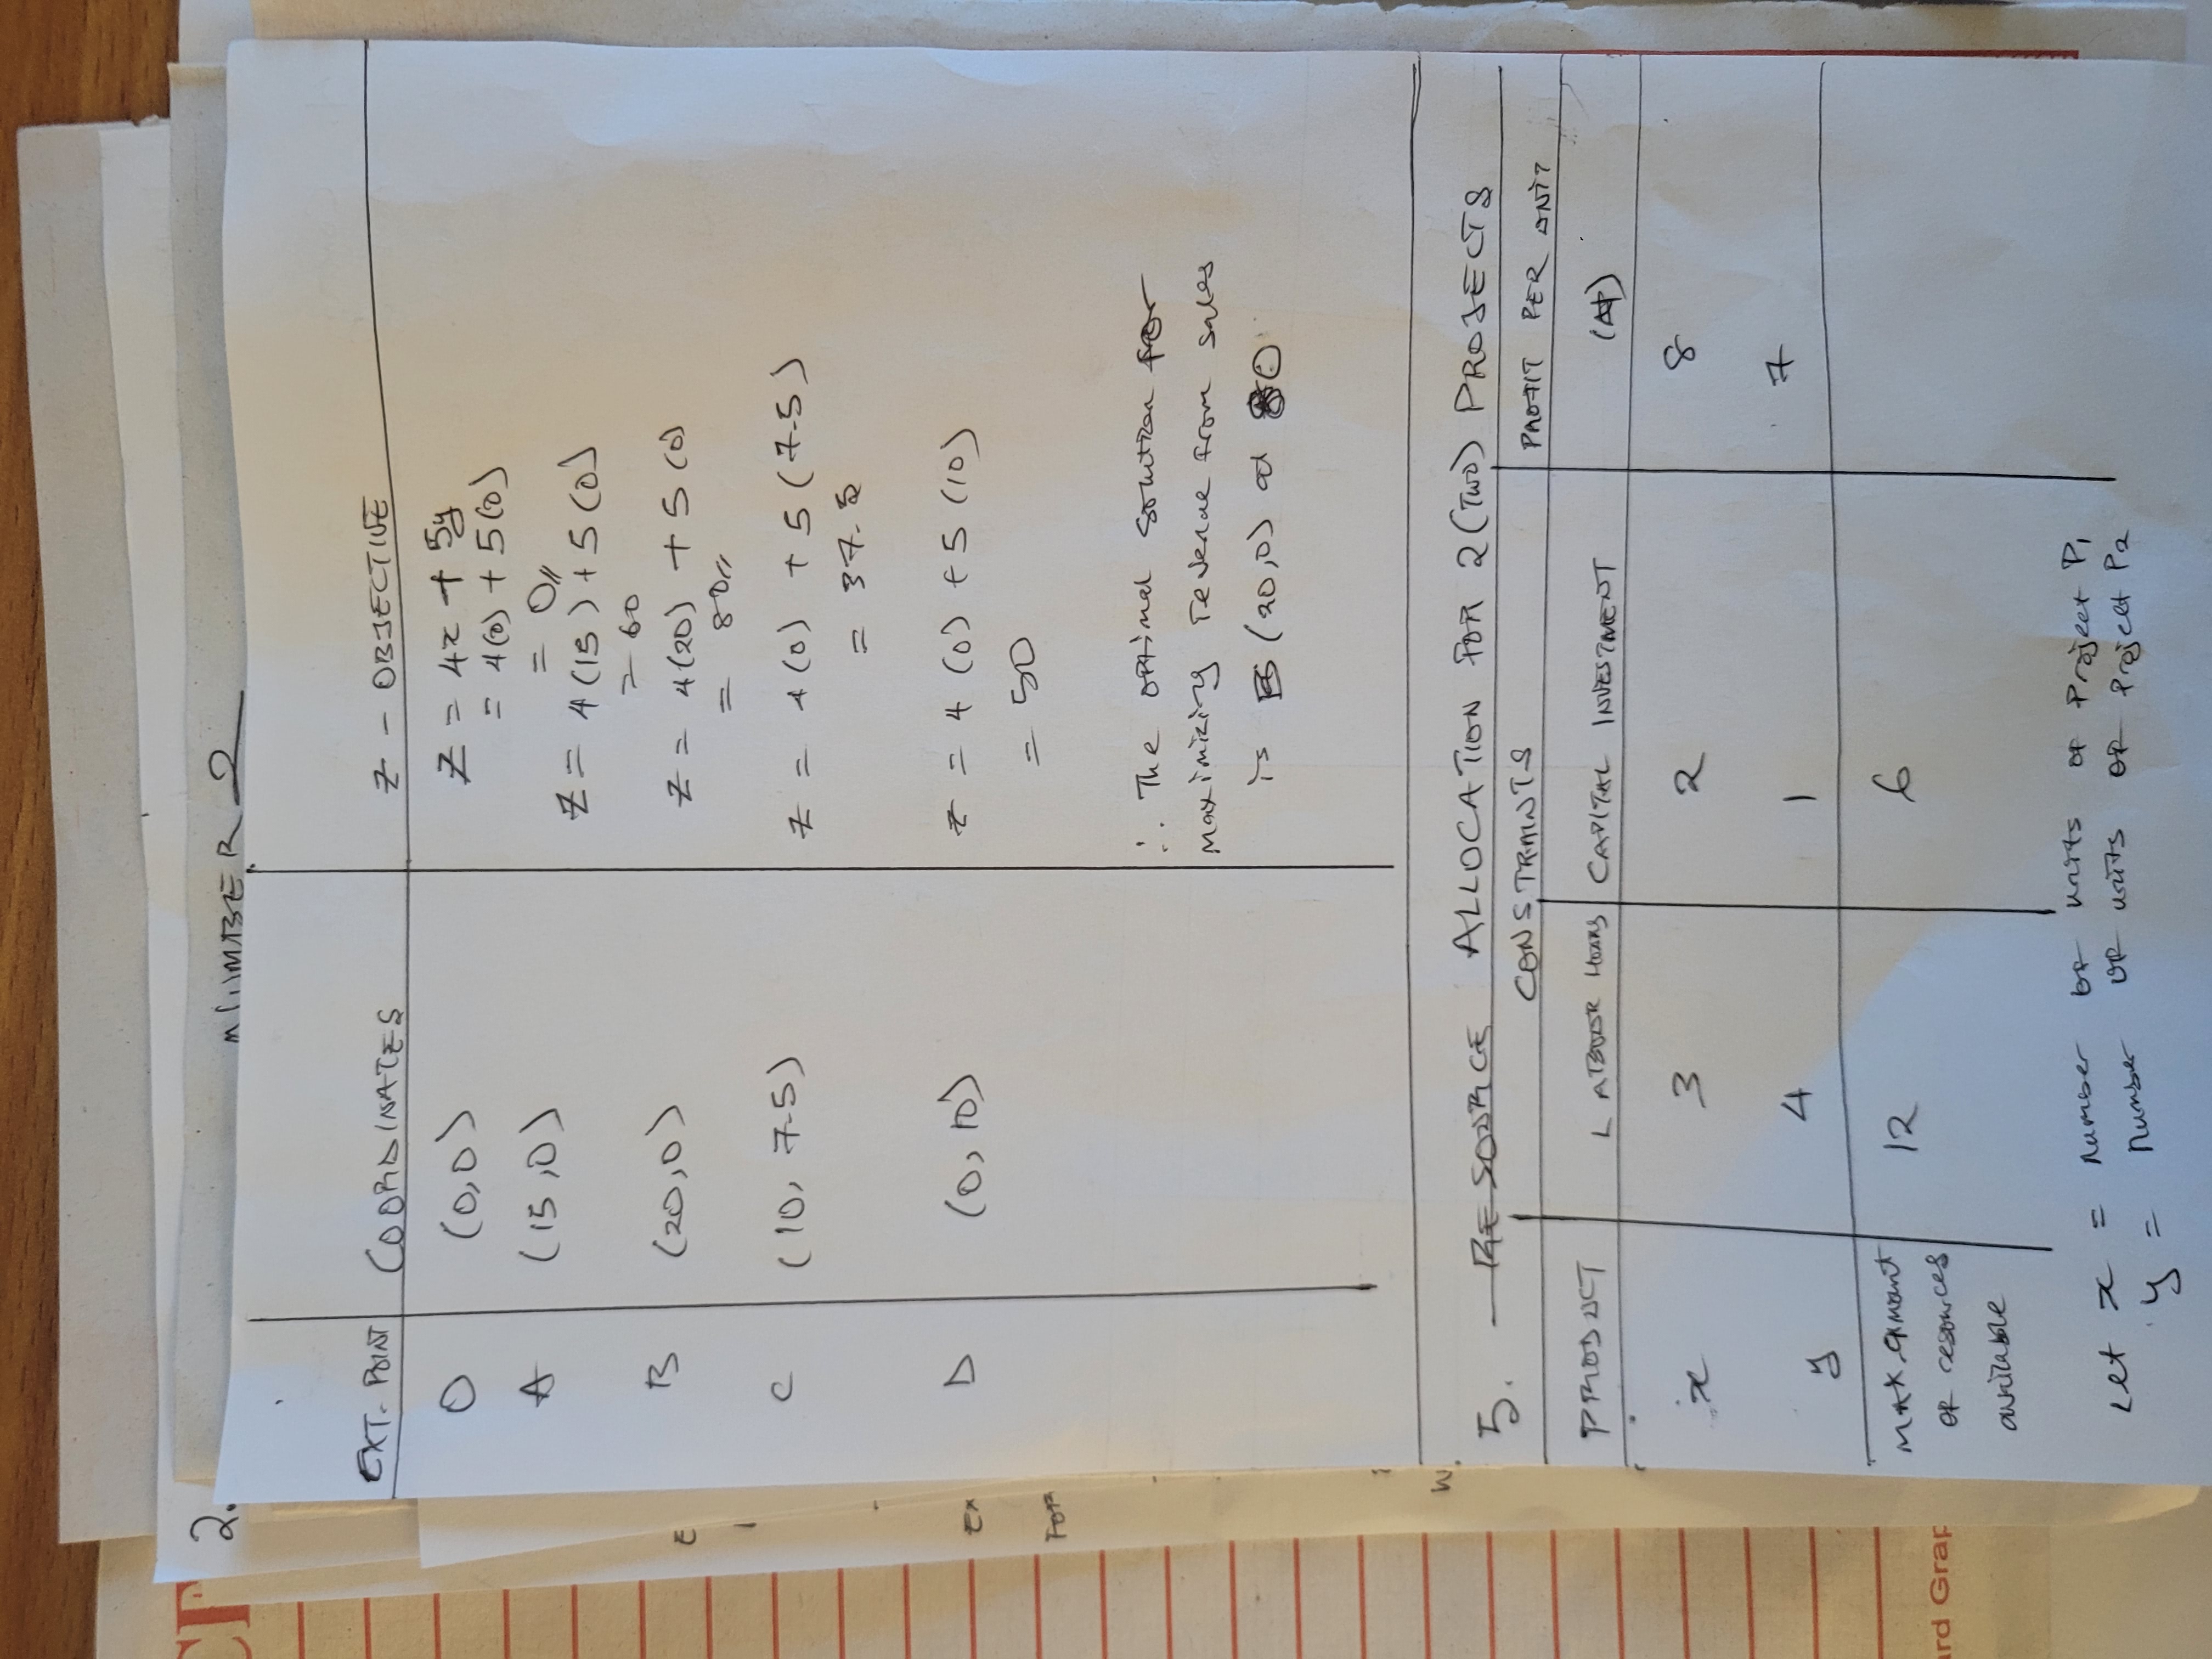 2.
NUMBER 2
EXT. POINT COORDINATES Z - OBJECTIVE
O (0,0) Z = 4x + 5y
= 4(0) + 5(0)
= 0//
A (15,0) Z = 4(15) + 5(0)
= 60
B (20,0) Z = 4(20) + 5(0)
= 80//
C (10, 7.5) Z = 4(0) + 5(7.5)
= 37.5
D (0,10) Z = 4(0) + 5(10)
= 50
∴ The optimal solution for
maximizing revenue from sales
is B (20,0) at 80
5. RESOURCE ALLOCATION FOR 2(TWO) PROJECTS
CONSTRAINTS PROFIT PER UNIT
PRODUCT LABOUR HOURS CAPITAL INVESTMENT (₦)
x 3 2 8
y 4 1 7
MAX. amount 12 6
of resources
available
Let x = number of units of Project P1
y = number of units of Project P2
Ex
For
W
ard Grap